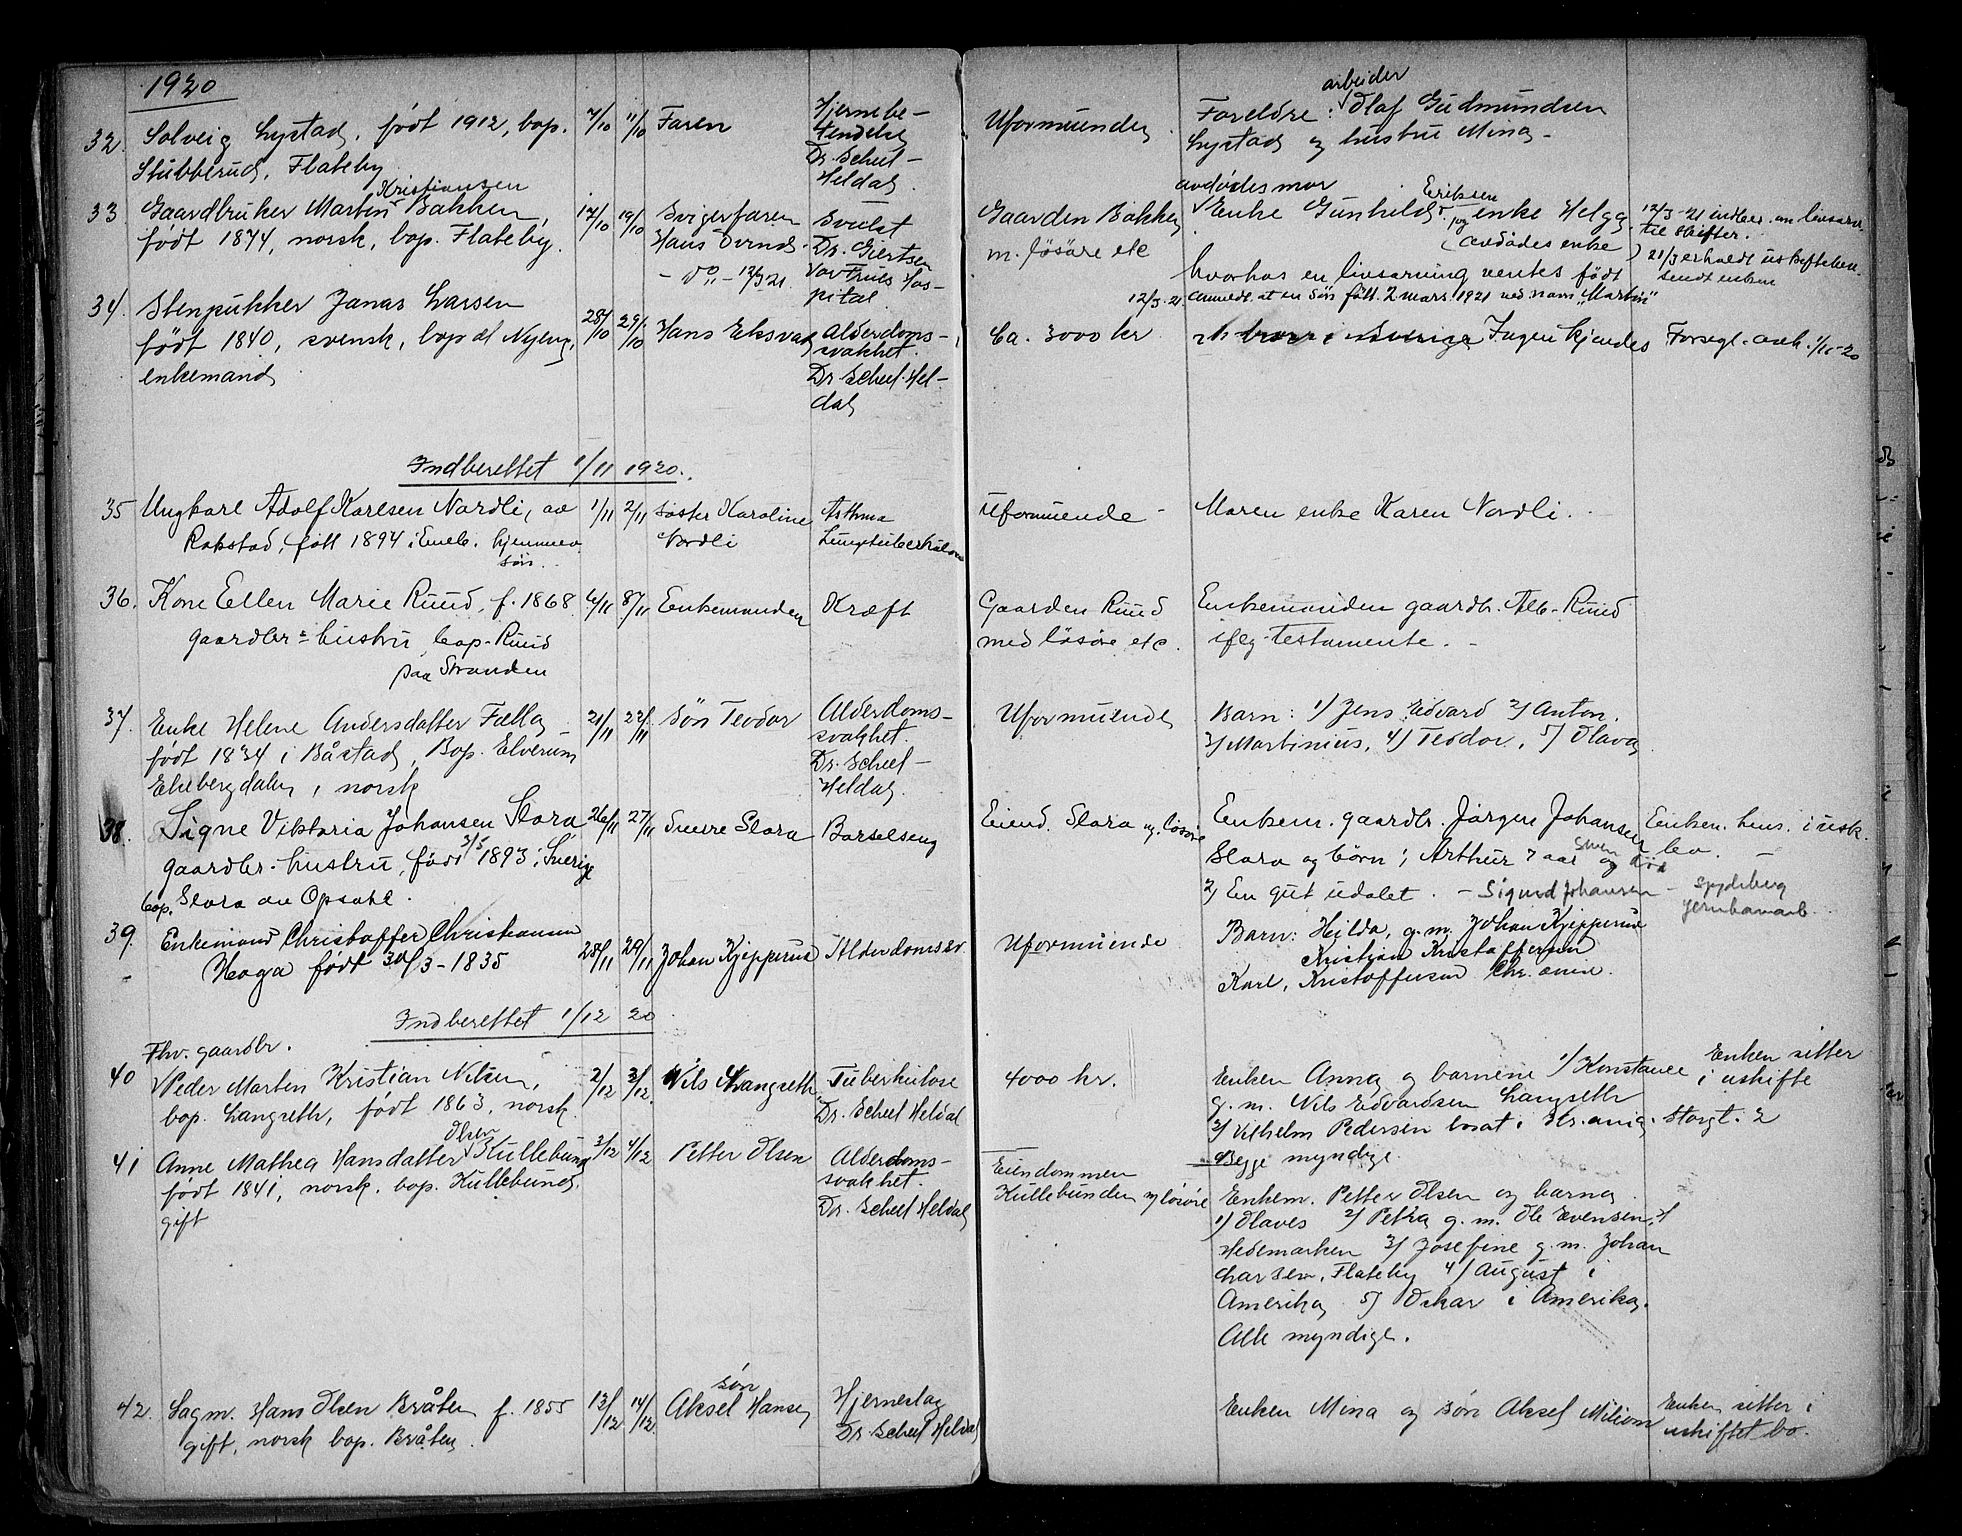 1920
32. Solveig Lystad, født 1912, bop. 7/10 11/10 Faren Hjernebe-
Stubberud, Flateby tendelse
Dr. Scheel-
Heldal.
Uformuende. Foreldre: arbeider Olaf Gudmundsen
Lystad og hustru Mina -
33 Gaardbruker Martin Kristiansen Bakken, 17/10 19/10 Svigerfaren Svulst
født 1874, norsk, bop. Flateby. Hans Dr. Giertsen
- do - 12/3 21. Vor Frues Hos-
pital
Gaarden Bakken
m. løsøre etc
avdødes mor
Enke Gunhild Eriksen og enke Helga
(avdødes enke)
hvorhos en livsarving ventes født
12/3-21 anmeldt at en søn født 2 mars 1921 ved navn "Martin"
12/3-21 indber. om livsarv.
til skifter.
21/3 erholdt uskiftebev.
sendt enken
34. Stenpukker Jonas Larsen 28/10 29/10 Hans Eksvad Alderdoms-
født 1840, svensk, bopæl Nyeng, svakhet.
enkemand Dr. Scheel-Hel-
dal
Ca. 3000 kr Ingen kjendes Forsegl. avh. 1/11-20
Indberettet 1/11 1920.
35 Ungkarl Adolf Karlsen Nordli, av 1/11 2/11 søster Karoline Asthma
Rakstad, født 1894 i Eneb. hjemmev. Nordli Lungetuberkulose
søn.
uformuende - Moren enke Karen Nordli.
36. Kone Ellen Marie Ruud, f. 1868 6/11 8/11 Enkemanden Kræft
gaardbr's hustru, bop. Ruud
paa Stranden
Gaarden Ruud Enkemanden gaardbr. Alb. Ruud
med løsøre etc. iflg. testamente. -
37. Enke Helene Andersdatter Fælla 21/11 22/11 søn Teodor Alderdoms-
født 1834 i Båstad, Bop. Elverum svakhet
Ekebergdalen, norsk Dr. Scheel-
Heldal
Uformuende Barn: 1/ Jens Edvard 2/ Anton.
3/ Martinius, 4/ Teodor, 5/ Olava
38. Signe Viktoria Johansen Slora 26/11 27/11 Snure Slora Barselseng
gaardbr. hustru, født 3/5 1893 i Sverige
bop. Slora av Opsahl.
Eiend. Slora og løsøre Enkem. gaardbr. Jørgen Johansen Enkem. hens. i usk.
Slora og børn; Arthur 7 aar og bo. -
2/ En gut udøbt. - Sigurd Johansen - Spydeberg
jernbanarb.
39. Enkemand Christoffer Christiansen 28/11 29/11 Johan Kjepperud Alderdomssv.
Haga født 30/3-1835
Uformuende Barn: Hilda, g.m. Johan Kjepperud
Kristian Kristoffersen
Karl, Kristoffersen Chr.ania.
Indberettet 1/12 20
Fhv. gaardbr.
40 Peder Marten Kristian Nilsen, 2/12 3/12. Nils Langseth, Tuberkulose
bop. Langseth, født 1863, norsk. Dr. Scheel Heldal
4000 kr. Enken Anna og barnene 1/ Konstance Enken sitter
g.m. Nils Edvardsen Langseth i uskifte
2/ Vilhelm Pedersen bosat i Kr.ania. Storgt. 2
Begge myndige.
41 Anne Mathea Hansdatter Olsen Kullebund 3/12 4/12 Petter Olsen Alderdoms-
født 1841, norsk. bop. Kullebund, svakhet.
gift Dr. Scheel Heldal
Eiendommen
Kullebunden og løsøre Enkem. Petter Olsen og barna
1/ Olaves 2/ Petra g.m. Ole Evensen,
Hedemarken 3/ Josefine g.m. Johan
Larsen, Flateby 4/ August i
Amerika 5/ Oskar i Amerika.
Alle myndige.
42. Sagm. Hans Olsen Bråten f. 1855 13/12 14/12 søn Aksel Hansen Hjerneslag
gift, norsk bop. Bråten. Dr. Scheel Heldal
Enken Mina og søn Aksel Enken sitter i
uskiftet bo.